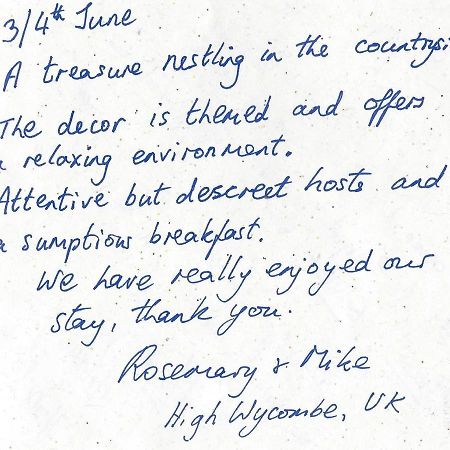 3/4th June
A treasure nestling in the countrysi
The decor is themed and offers
a relaxing environment.
Attentive but descreet hosts and
a sumptious breakfast.
We have really enjoyed our
stay, thank you.
Rosemary & Mike
High Wycombe, UK